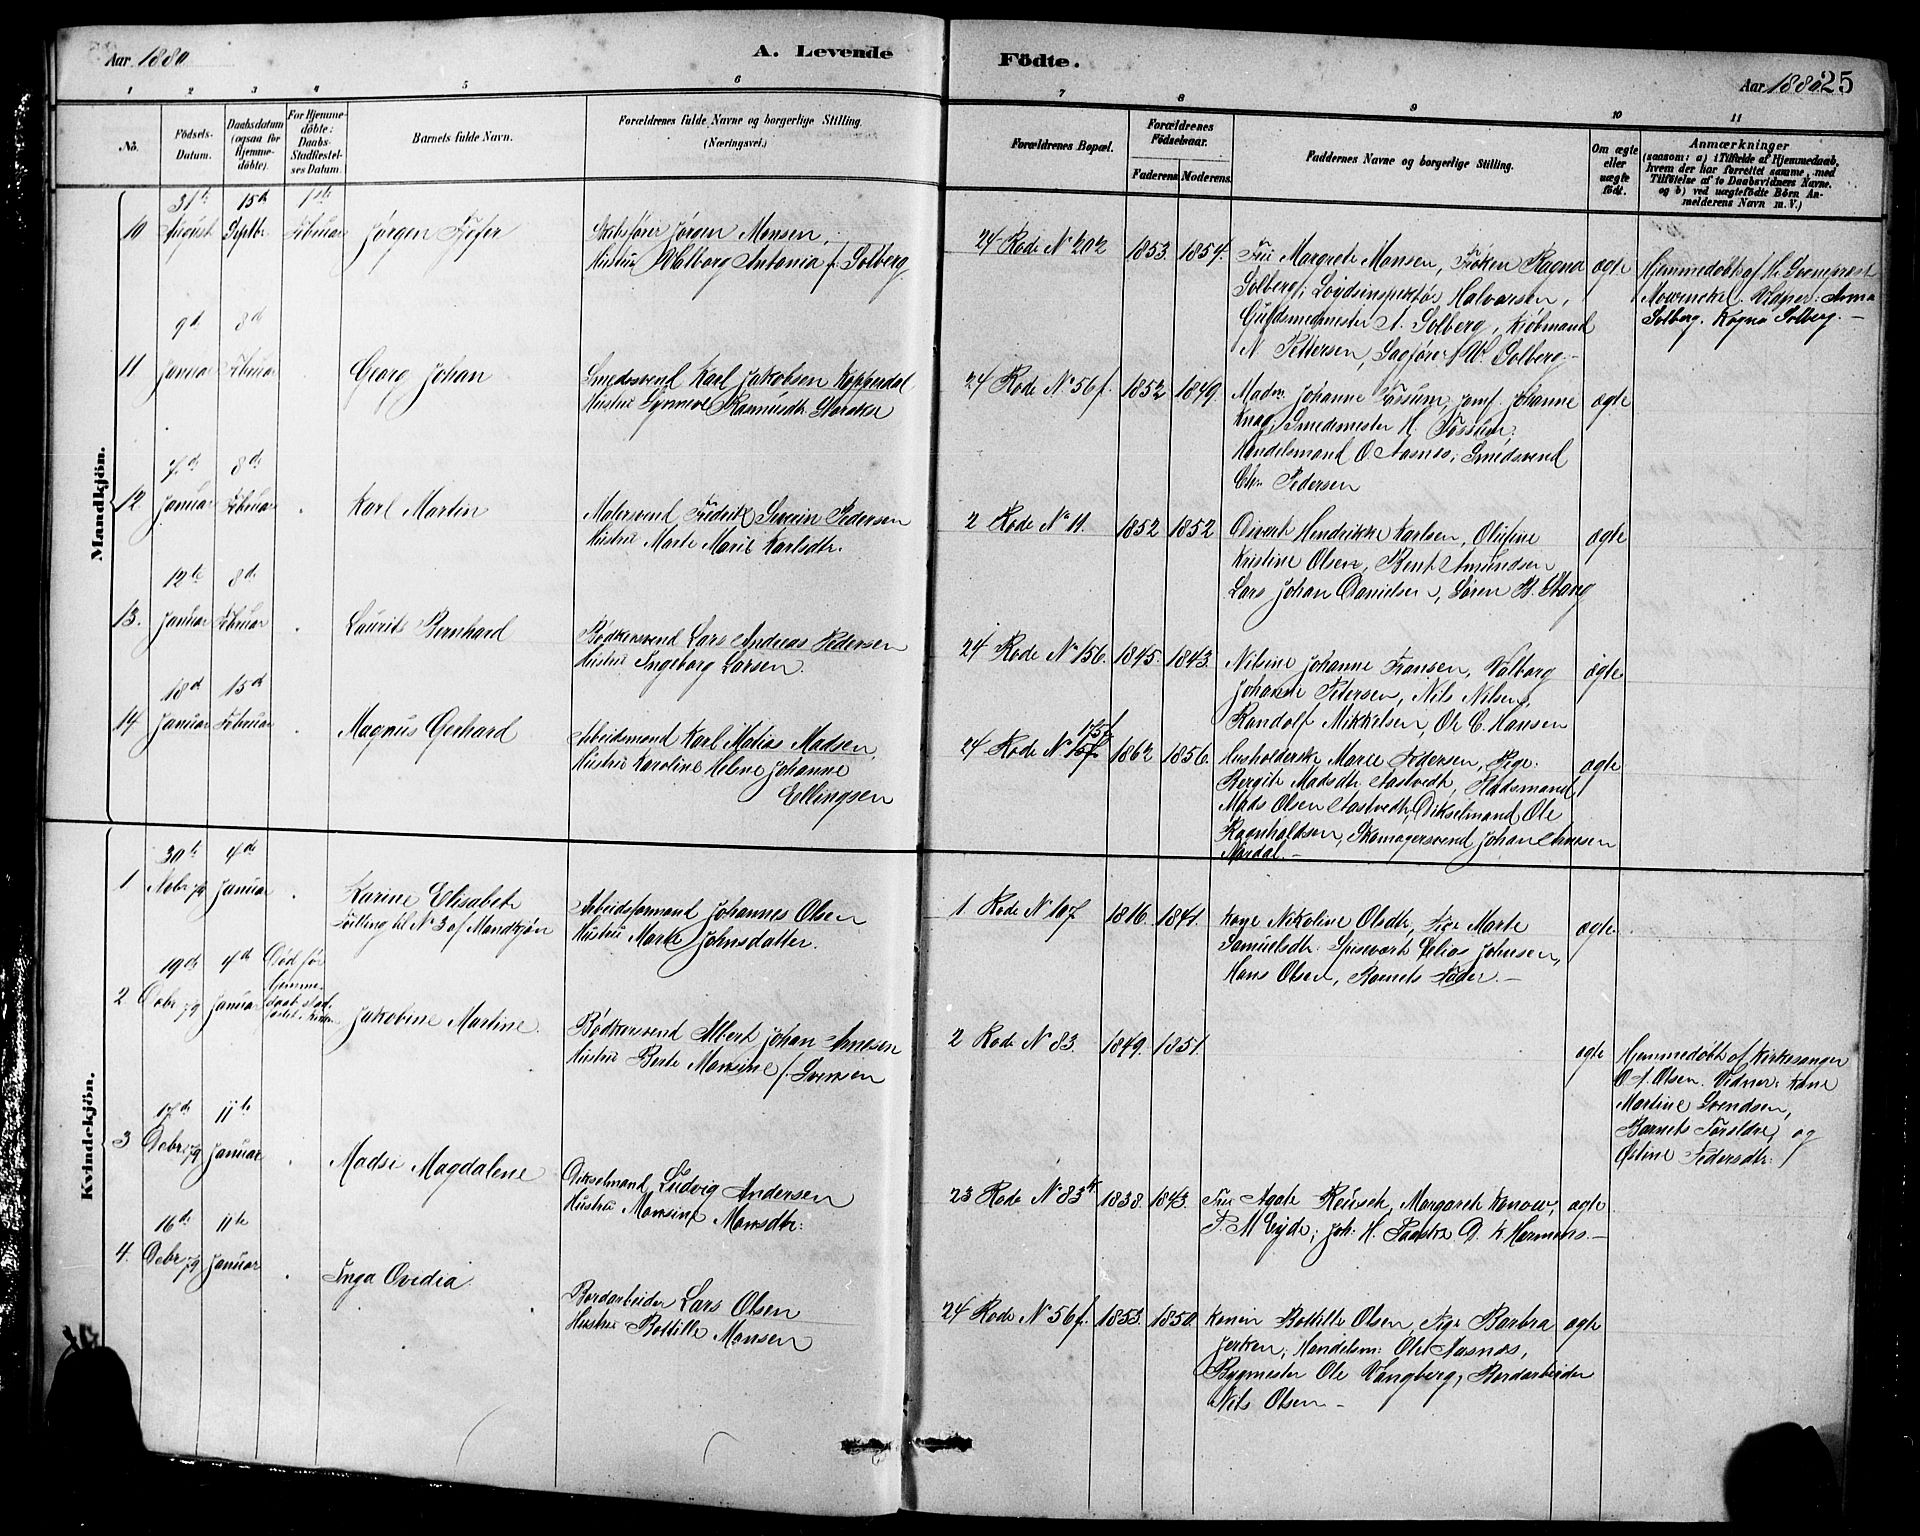 Aar 1880
A. Levende
Fødte.
Aar 1880 25
1 2 3 4 5 6
7 8 9 10 11
No.
Fødsels-
Datum.
Daabsdatum
(ogsaa for
Hjemme-
døbte).
For Hjemme-
døbte:
Daabs-
Stadfæstel-
ses Datum.
Barnets fulde Navn.
Forældrenes fulde Navne og borgerlige Stilling.
(Næringsvei.)
Forældrenes Bopæl.
Forældrenes
Fødselsaar.
Faderens. Moderens.
Faddernes Navne og borgerlige Stilling.
Om ægte
eller
uægte
født.
Anmærkninger
(saasom: a) i Tilfælde af Hjemmedaab,
hvem der har forrettet samme, med
Tilføielse af to Daabsvidners Navne,
og b) ved uægtefødte Børn An-
melderens Navn m. V.)
Mandkjøn.
31te 15d 1ste
10 August Septbr Februar Jørgen
Skibsfører Jørgen Monsen,
Hustru Valborg Antonia f. Solberg.
24 Rode No 202 1853. 1854.
Fru Margrete Monsen, Frøken Ragna
Solberg; Loydsinspektør Halvorsen,
Guldsmedmester A. Solberg, Kjøbmand
N. Pettersen, Sagfører W. Solberg.-
ægte
Hjemmedøbt af Hr Sognepræst
Mowinckel. Vidner: Anna
Solberg. Ragna Solberg.-
9d 8d
11 Januar Februar Georg Johan
Smedsvend Karl Jakobsen Kopperdal
Hustru Synneve Rasmusdtr
24 Rode No 56f. 1852 1849.
Madm. Johanne Fossum, Jomf. Johanne
Knag, Smedemester H. Fossum.
Handelsmand O. Aasnes; Smedsvend
Chr. Pedersen
ægte
7d 8d
12 Januar Februar Karl Martin
Malersvend Fredrik Severin Pedersen
Hustru Marte Marie Karlsdtr.
2 Rode No 11. 1852 1852
Hendrikke Karlsen, Olufine
Kristine Olsen, Bent Amundsen
Lars Johan Danielsen, Søren B. Stang
ægte
12te 8d
13. Januar Februar Laurits Bernhard
Bødkersvend Lars Andreas Pedersen
Hustru Ingeborg Larsen.
24 Rode No 156. 1845. 1843.
Nilsine Johanne Fransen, Valborg
Johanne Petersen, Nils Nilsen,
Randolf Mikkelsen, Ole C. Hansen
ægte
18d 15d
14 Januar Februar Magnus Gerhard
Arbeidsmand Karl Matias Madsen,
Hustru Karoline Helene Johanne
Ellingsen
24 Rode No 1862 1856.
Husholderske Marie Pedersen, Pige
Bergite Madsdtr Aastvedt, Stadsmand
Mads Olsen Aastvedt, Dikselmand Ole
Ragnhaldsen, Skomagersvend Johan Arnesen
Nordal.-
ægte
Kvindekjøn.
30te 4d
1 Nobr 79 Januar Karine Elisabet
Tvilling til No 3 af Mandkjøn
Arbeidsformand Johannes Olsen
Hustru Marte Johnsdatter.
1 Rode No 107 1816. 1841.
Kone Nikoline Olsdtr, Pige Marte
Samuelsdtr. Spisevært Elias Johnsen,
Hans Olsen, Barnets Fader.-
ægte
19de 4d Død før
Hjemme-
daab stad-
fæstet i Kirken
2 Debr 79 Januar Jakobine Martine.
Bødkersvend Albert Johan Arnesen
Hustru Berte Monsine f. Svensen
2 Rode No 83. 1849. 1851.
ægte
Hjemmedøbt af Kirkesanger
O A Olsen. Vidner: Kone
Martine Svendsen,
Barnets Forældre, og
Østine Pedersdtr.
17de 11te
3 Debr 79 Januar Madsi Magdalene
Dikselmand Ludvig Andersen
Hustru Monsine Monsdtr.
23 Rode No 83k 1838. 1843.
Fru Agate Reusch, Margarete Konow,
P. M Eyde; Joh. H. D. K.
ægte
16de 11te
4. Debr 79 Januar Inga Ovidia
Bordarbeider Lars Olsen
Hustru Botille Monsen
24 Rode No 56f. 1853. 1850.
Konen Botille Olsen, Pige Barbra
Jerken, Handelsm. Ole Aasnes,
Bygmester Ole Vangberg, Bordarbeider
Nils Olsen-
ægte